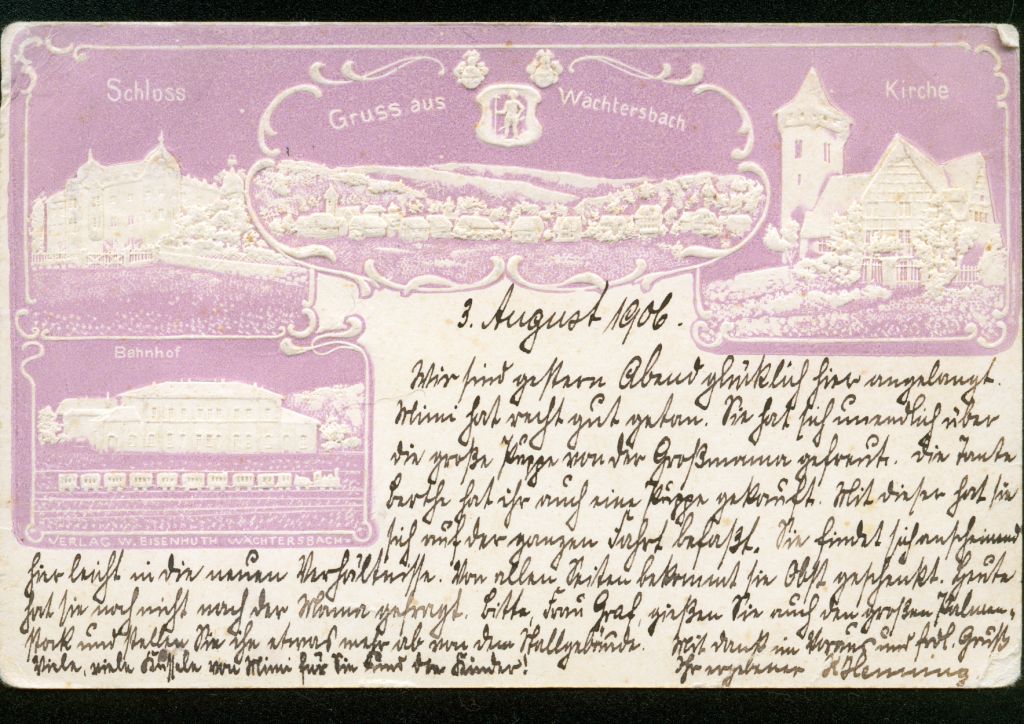 Schloss
Gruss aus Wächtersbach
Kirche
Bahnhof
VERLAG W. EISENHUTH WÄCHTERSBACH
3. August 1906.
Wir sind gestern Abend glücklich hier angelangt.
Mimi hat recht gut getan. Sie hat sich unendlich über
die große Puppe von der Großmama gefreut. Die Tante
Berthe hat ihr auch eine Puppe gekauft. Mit dieser hat sie
sich auf der ganzen Fahrt befaßt. Sie findet sich anscheinend
hier leicht in die neuen Verhältnisse. Von allen Seiten bekommt sie Obst geschenkt. Heute
hat sie noch nicht nach der Mama gefragt. Bitte, Frau Graf, gießen Sie auch den großen Palmen-
stock und stellen Sie ihn etwas mehr ab von dem Mit dank im Voraus und frdl. Gruß
Viele, viele Küssele von Mimi für die und die Kinder!
Ihr ergebener HHenning.